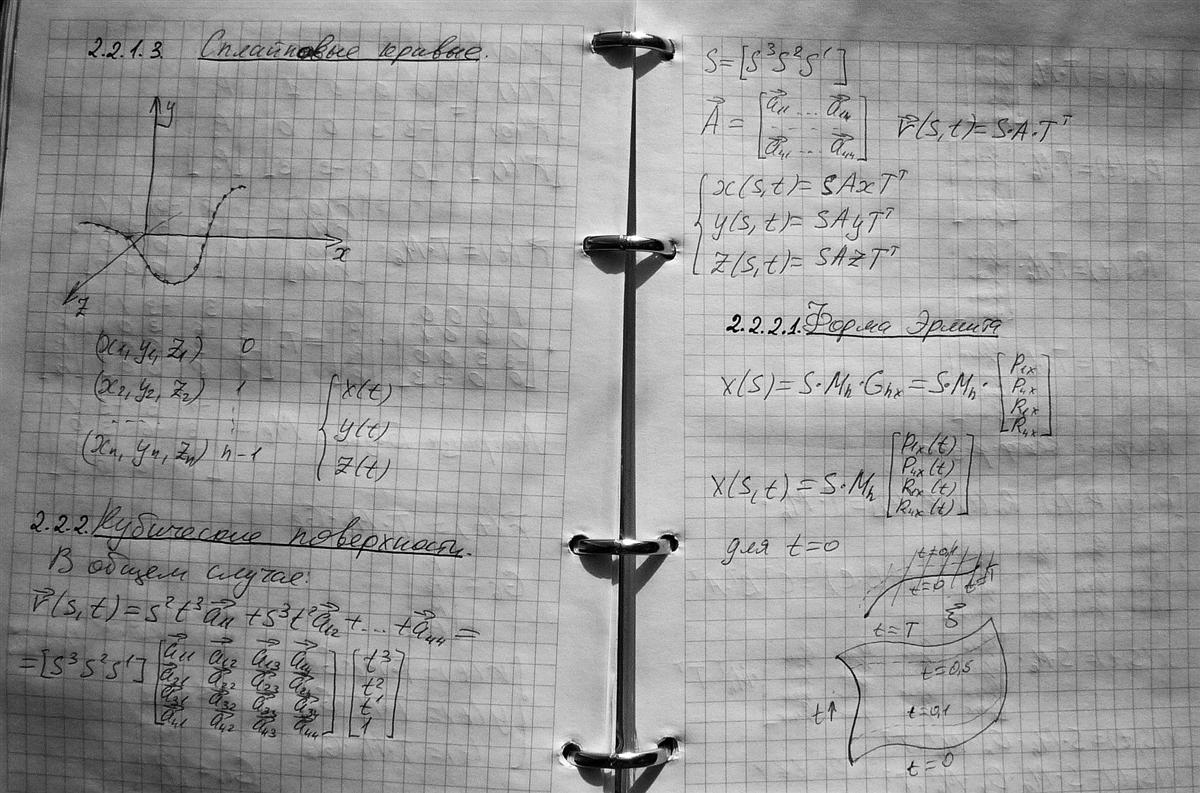 2.2.1.3. Сплайновые кривые.
y
x
z
(x₁, y₁, z₁) 0
(x₂, y₂, z₂) 1
..... :
(xₙ, yₙ, zₙ) n-1
{ x(t)
y(t)
z(t)
2.2.2. Кубические поверхности.
В общем случае:
r⃗(s,t) = s²t³a⃗₁₁ + s³t²a⃗₁₂ + ... + a⃗₄₄ =
= [s³ s² s¹] [a⃗₁₁ a⃗₁₂ a⃗₁₃ a⃗₁₄] [t³]
[a⃗₂₁ a⃗₂₂ a⃗₂₃ a⃗₂₄] [t²]
[a⃗₃₁ a⃗₃₂ a⃗₃₃ a⃗₃₄] [t¹]
[a⃗₄₁ a⃗₄₂ a⃗₄₃ a⃗₄₄] [1]
S = [s³ s² s¹]
A⃗ = [a⃗₁₁ ... a⃗₁₄
.......
a⃗₄₁ ... a⃗₄₄] r⃗(s,t) = S·A·Tᵀ
{ x(s,t) = SAxTᵀ
y(s,t) = SAyTᵀ
z(s,t) = SAzTᵀ
2.2.2.1. Форма Эрмита
x(s) = S·Mₕ·Gₕₓ = S·Mₕ· [P₁ₓ
P₄ₓ
R₁ₓ
R₄ₓ]
x(s,t) = S·Mₕ [P₁ₓ(t)
P₄ₓ(t)
R₁ₓ(t)
R₄ₓ(t)]
для t=0
t=0,1
t=0
t=T
S⃗
t=T
t=0,5
t↑
t=0,1
t=0